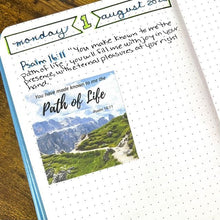 monday 1 august 202
Psalm 16:11 "You make known to me the
path of life; you will fill me with joy in your
presence, with eternal pleasures at your right
hand."
You have made known to me the
Path of Life
Psalm 16:11